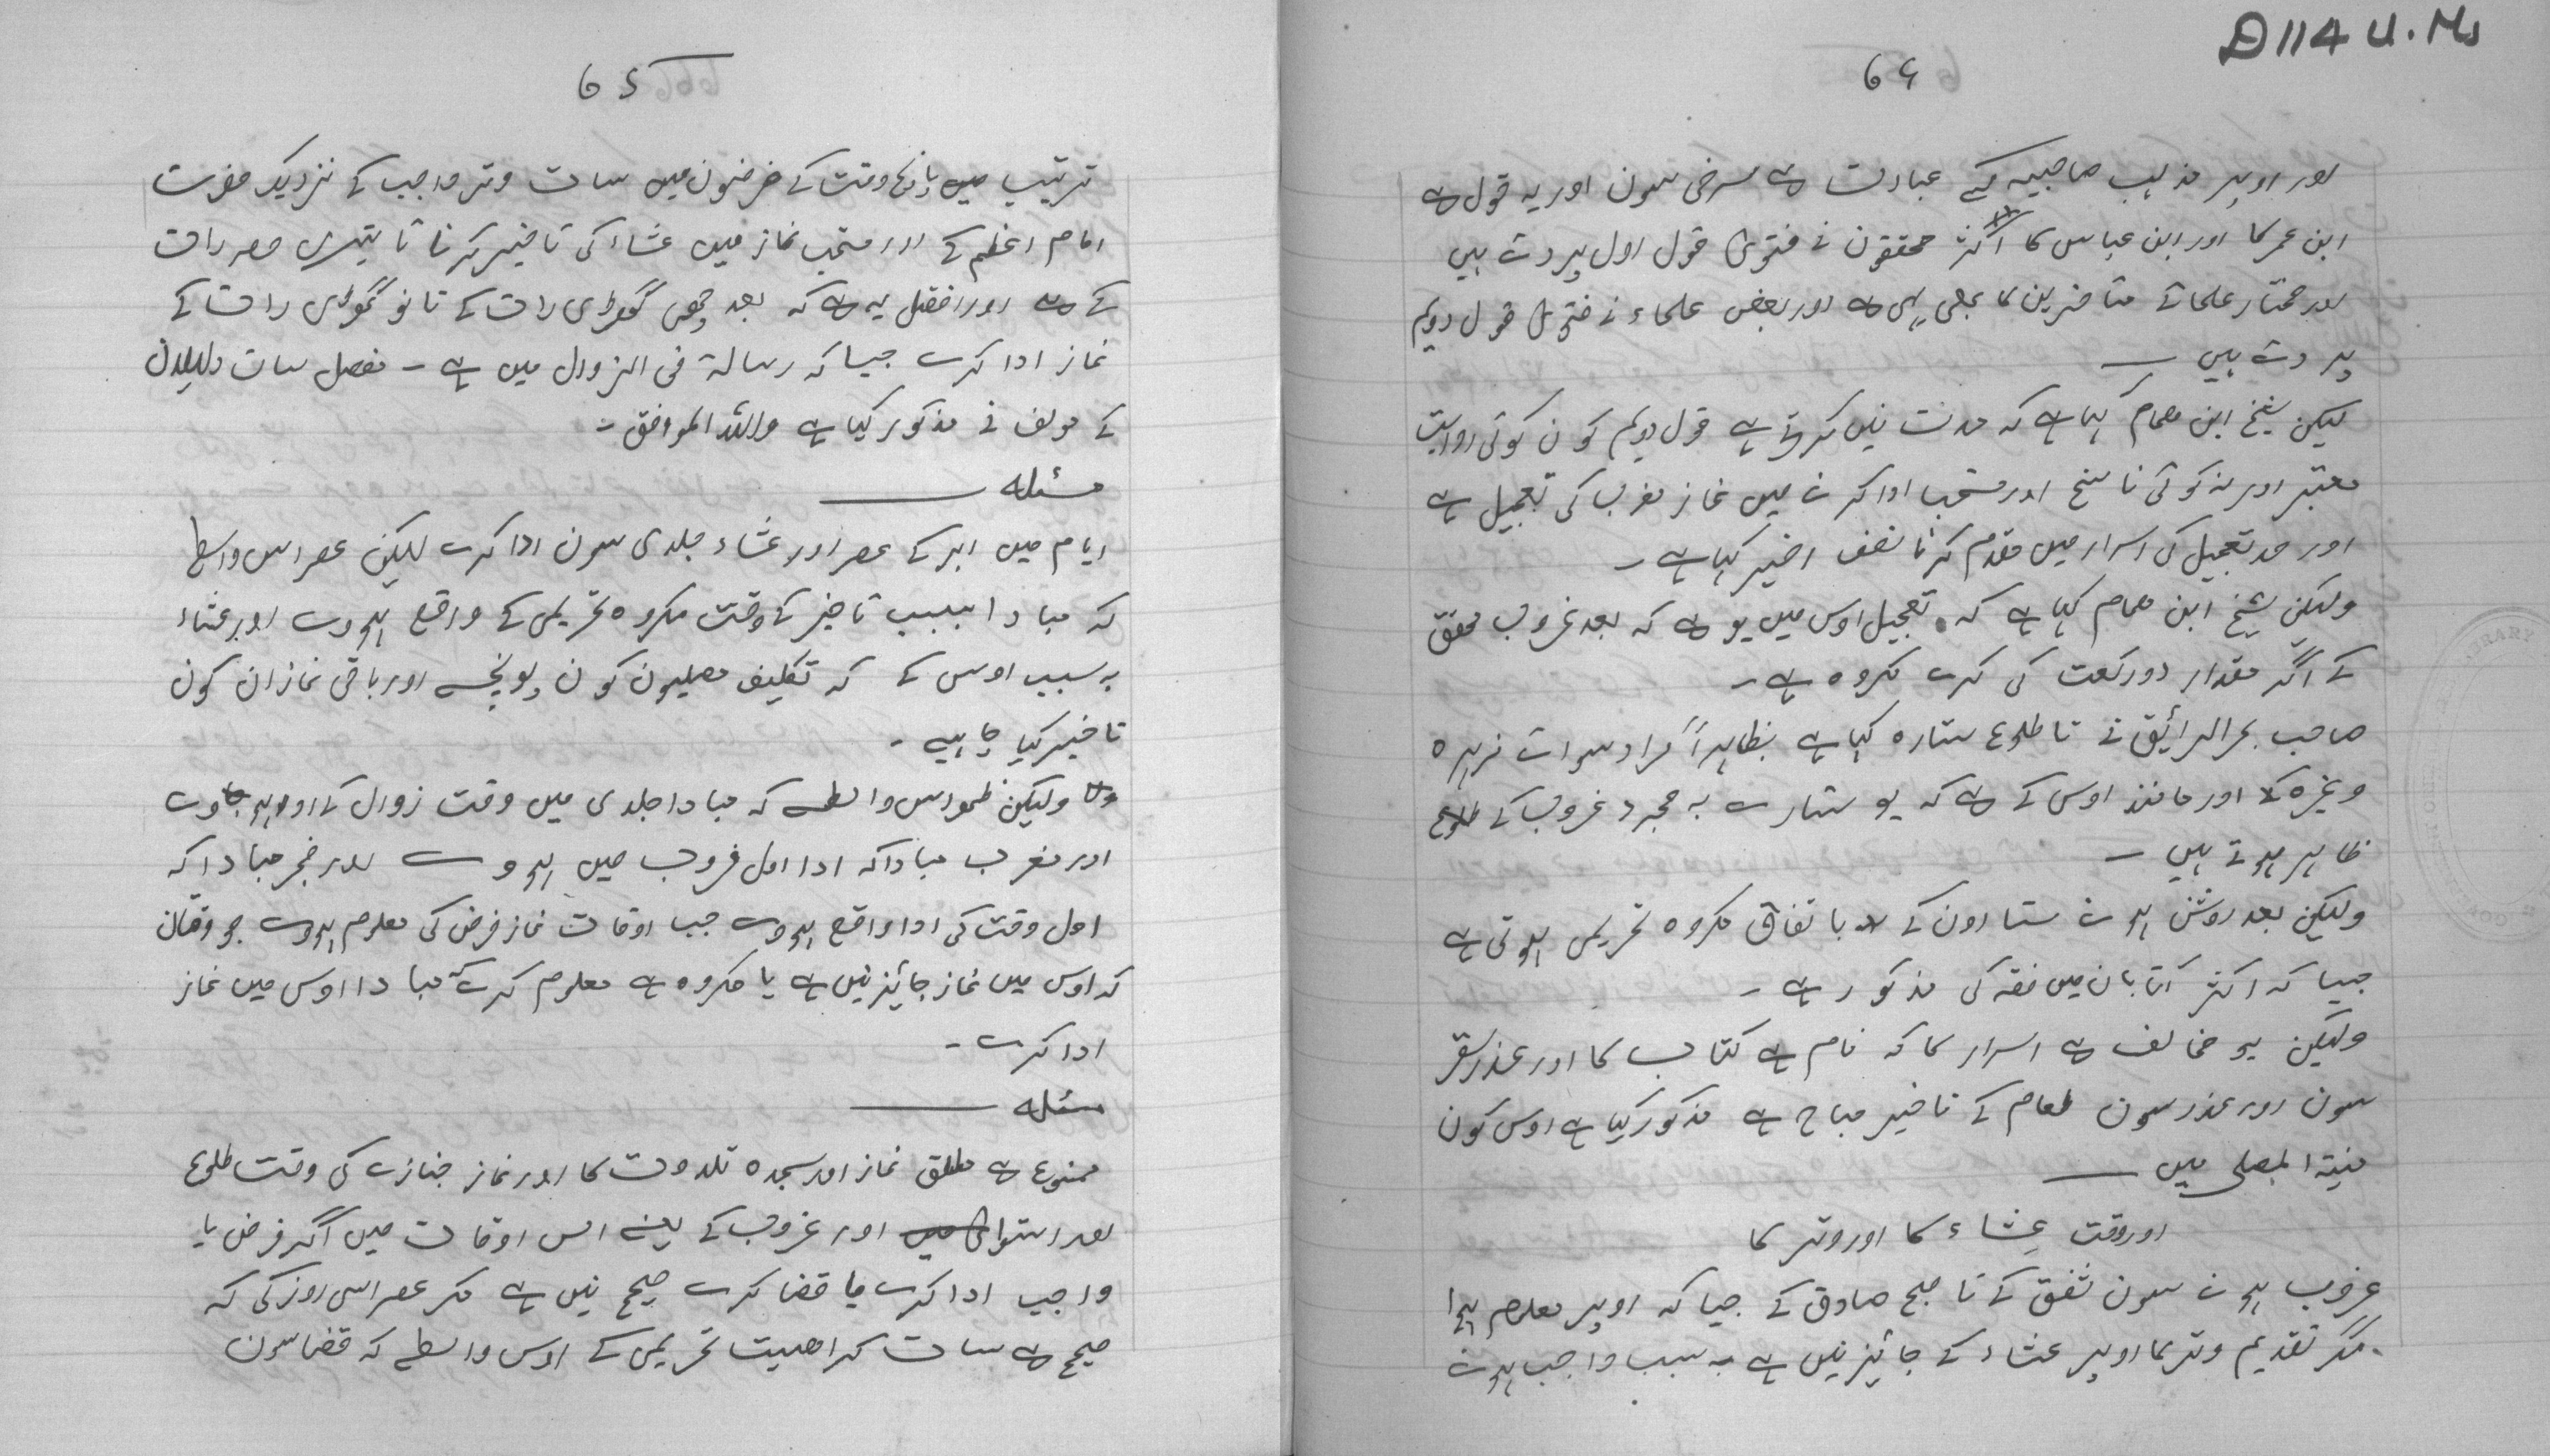 D 114 U. Ms
64
اور اوپر مذہب صاحبیہ کے عبارت ہے سرخی سون اور یہ قول ہے
ابن عمر کا اور ابن عباس کا اکثر محققون نے فتویٰ قول اول پر دے ہیں
اور مختار علمائے متاخرین کا بھی یہی ہے اور بعض علماء نے فتویٰ قول دویم
پر دے ہیں ــ
لیکن شیخ ابن ھمام کہا ہے کہ مدت نیں کرتی ہے قول دویم کون کوئی روایت
معتبر اور نہ کوئی ناسخ اور مستحب ادا کرنے میں نماز مغرب کی تعجیل ہے
اور حد تعجیل کی اسرار میں مقدم کرنا نصف اخیر کہا ہے ــ
ولیکن شیخ ابن ھمام کہا ہے کہ تعجیل اوس میں یو ہے کہ بعد غروب محقق
کے اگر مقدار دو رکعت کی کرے مکروہ ہے ــ
صاحب بحر الرائق نے تا طلوع ستارہ کہا ہے بظاہراً مراد سوات زہرہ
وغیرہ کا اور مانند اوس کے ہے کہ یو ستارے بہ مجرد غروب کے طلوع
ظاہر ہوتے ہیں ــ
ولیکن بعد روشن ہونے ستارون کے باتفاق مکروہ تحریمی ہوتی ہے
جیسا کہ اکثر کتابان میں فقہ کی مذکور ہے ــ
ولیکن یو مخالف ہے اسرار کا کہ نام ہے کتاب کا اور عذر سفر
سون اور عذر سون طعام کے تاخیر مباح ہے مذکور کیا ہے اوس کون
منیۃ المصلی میں ــ
اور وقت عشاء کا اور وتر کا
غروب ہونے سون شفق کے تا صبح صادق کے جیسا کہ اوپر معلوم ہوا
مگر تقدیم وتر کا اوپر عشاء کے جائیز نیں ہے بہ سبب واجب ہونے
65
ترتیب میں پانچ وقت کے فرضون میں سات وتر واجب کے نزدیک حضرت
امام اعظم کے اور مستحب نماز میں عشاء کی تاخیر کرنا تا تیسری حصہ رات
کے ہے اور افضل یہ ہے کہ بعد چھی گھڑی رات کے تا نو گھڑی رات کے
نماز ادا کرے جیسا کہ رسالۃ فی الزوال میں ہے ــ مفصل سات دلیلان
کے مولف نے مذکور کیا ہے واللہ الموافق ــ
مسئلہ ــ
ایام میں ابر کے عصر اور عشاء جلدی سون ادا کرے لیکن عصر اس واسطے
کہ مبادا بسبب تاخیر کے وقت مکروہ تحریمی کے واقع ہووے اور عشاء
بہ سبب اوس کے کہ تکلیف مصلیون کون پونچے اور باقی نمازان کون
تاخیر کیا چاہیے ــ
ولیکن ظہر اس واسطے کہ مبادا جلدی میں وقت زوال کے ادا ہو جاوے
اور مغرب مبادا کہ ادا اول غروب میں ہووے اور فجر مبادا کہ
اول وقت کی ادا واقع ہووے جب اوقات نماز فرض کی معلوم ہووے جو وقتان
کہ اوس میں نماز جائیز نیں ہے یا مکروہ ہے معلوم کرے مبادا اوس میں نماز
ادا کرے ــ
مسئلہ ــ
ممنوع ہے مطلق نماز اور سجدہ تلاوت کا اور نماز جنازے کی وقت طلوع
اور استوا میں اور غروب کے یعنے اس اوقات میں اگر فرض یا
واجب ادا کرے یا قضا کرے صحیح نیں ہے مگر عصر اسی روز کی کہ
صحیح ہے سات کراھیت تحریمی کے اوس واسطے کہ قضا سون